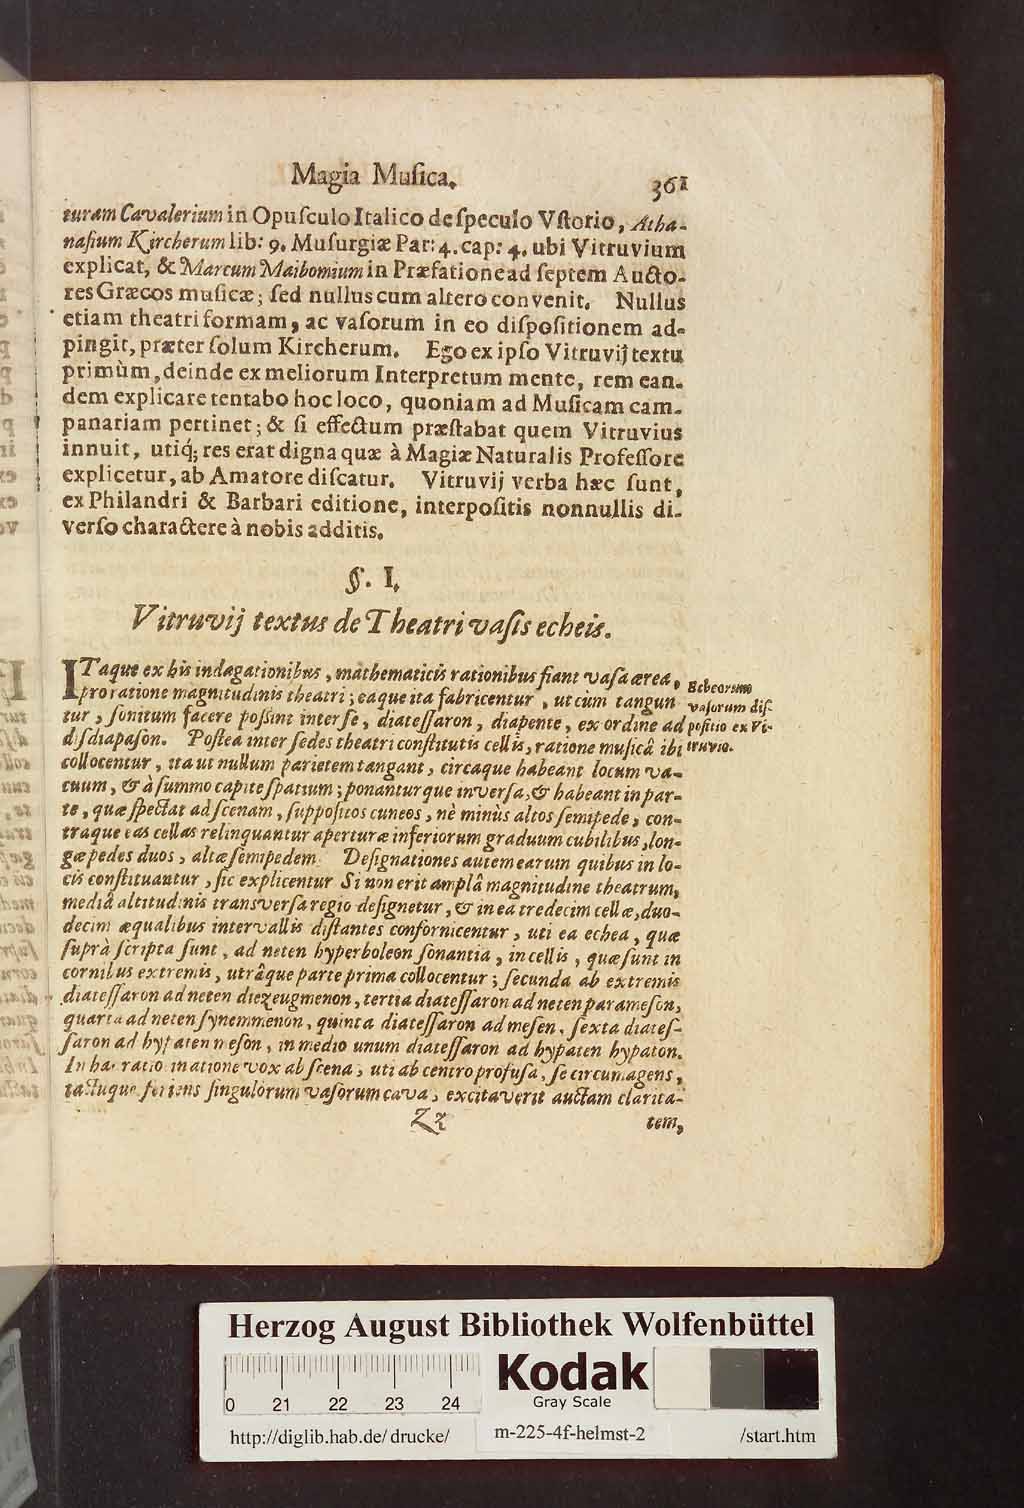 Magia Muſica. 361
turam Cavalerium in Opuſculo Italico de ſpeculo Vſtorio, Atha-
naſium Kircherum lib: 9. Muſurgiæ Par: 4. cap: 4. ubi Vitruvium
explicat, & Marcum Maibomium in Præfatione ad ſeptem Aucto-
res Græcos muſicæ; ſed nullus cum altero convenit. Nullus
etiam theatri formam, ac vaſorum in eo diſpoſitionem ad-
pingit, præter ſolum Kircherum. Ego ex ipſo Vitruvij textu
primùm, deinde ex meliorum Interpretum mente, rem ean-
dem explicare tentabo hoc loco, quoniam ad Muſicam cam-
panariam pertinet; & ſi effectum præſtabat quem Vitruvius
innuit, utiq́; res erat digna quæ à Magiæ Naturalis Profeſſore
explicetur, ab Amatore diſcatur. Vitruvij verba hæc ſunt,
ex Philandri & Barbari editione, interpoſitis nonnullis di-
verſo charactere à nobis additis.
§. I.
Vitruvij textus de Theatri vaſis echeis.
ITaque ex his indagationibus, mathematicis rationibus fiant vaſa ærea,
pro ratione magnitudinis theatri; eaque ita fabricentur, ut cùm tangun
tur, ſonitum facere poſſint inter ſe, diateſſaron, diapente, ex ordine ad
diſdiapaſon. Poſtea inter ſedes theatri conſtitutis cellis, ratione muſicâ ibi
collocentur, ita ut nullum parietem tangant, circaque habeant locum va-
cuum, & à ſummo capite ſpatium; ponanturque inverſa, & habeant in par-
te, quæ ſpectat ad ſcenam, ſuppoſitos cuneos, nè minùs altos ſemipede, con-
traque eas cellas relinquantur aperturæ inferiorum graduum cubilibus, lon-
gæ pedes duos, altæ ſemipedem. Deſignationes autem earum quibus in lo-
cis conſtituantur, ſic explicentur Si non erit amplâ magnitudine theatrum,
mediâ altitudinis transverſa regio deſignetur, & in ea tredecim cellæ, duo-
decim æqualibus intervallis diſtantes confornicentur, uti ea echea, quæ
ſuprà ſcripta ſunt, ad neten hyperboleon ſonantia, in cellis, quæ ſunt in
cornibus extremis, utrâque parte prima collocentur; ſecunda ab extremis
diateſſaron ad neten diezeugmenon, tertia diateſſaron ad neten parameſon,
quarta ad neten ſynemmenon, quinta diateſſaron ad meſen, ſexta diateſ-
ſaron ad hypaten meſon, in medio unum diateſſaron ad hypaten hypaton.
In hac ratiocinatione vox ab ſcena, uti ab centro profuſa, ſe circumagens,
tactuque feriens ſingulorum vaſorum cava, excitaverit auctam clarita-
Zz tem,
Echeorum
vaſorum diſ-
poſitio ex Vi-
truvio.
Herzog August Bibliothek Wolfenbüttel
0 21 22 23 24
Kodak
Gray Scale
http://diglib.hab.de/drucke/ m-225-4f-helmst-2 /start.htm